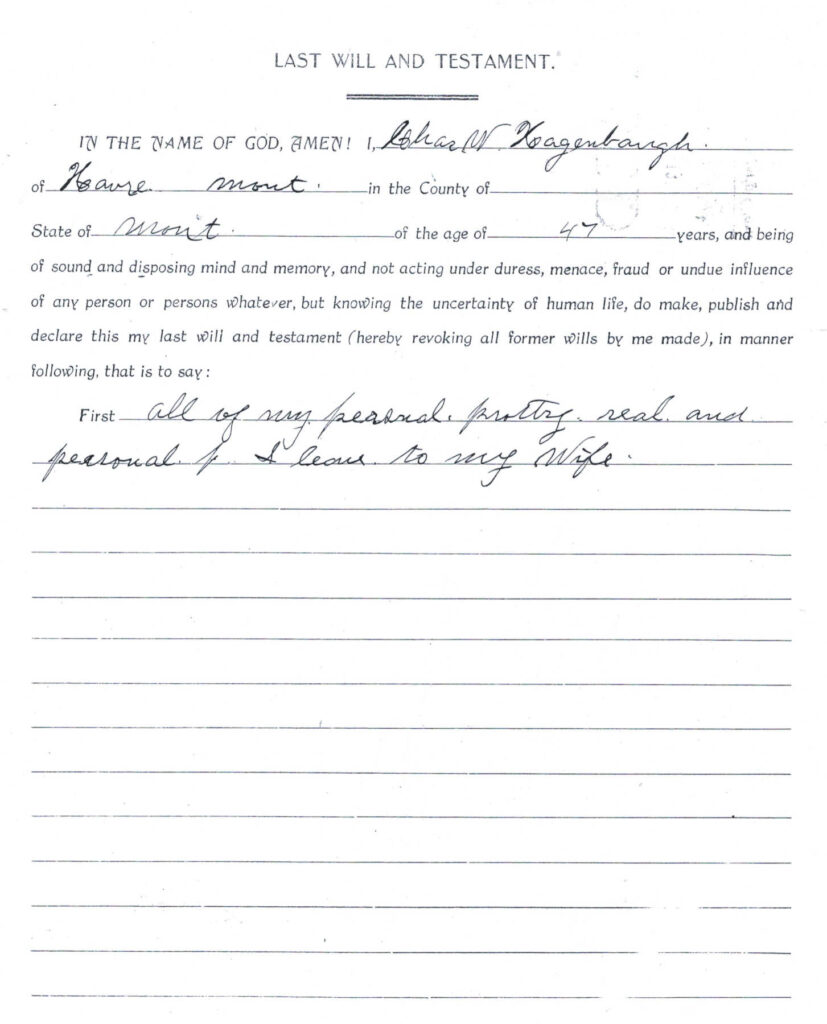 LAST WILL AND TESTAMENT.
IN THE NAME OF GOD, AMEN! I, Chas W. Hagenbaugh.
of Havre mont. in the County of
State of Mont. of the age of 47 years, and being
of sound and disposing mind and memory, and not acting under duress, menace, fraud or undue influence
of any person or persons whatever, but knowing the uncertainty of human life, do make, publish and
declare this my last will and testament (hereby revoking all former wills by me made), in manner
following, that is to say:
First all of my personal. real. and
personal. I leave to my Wife.